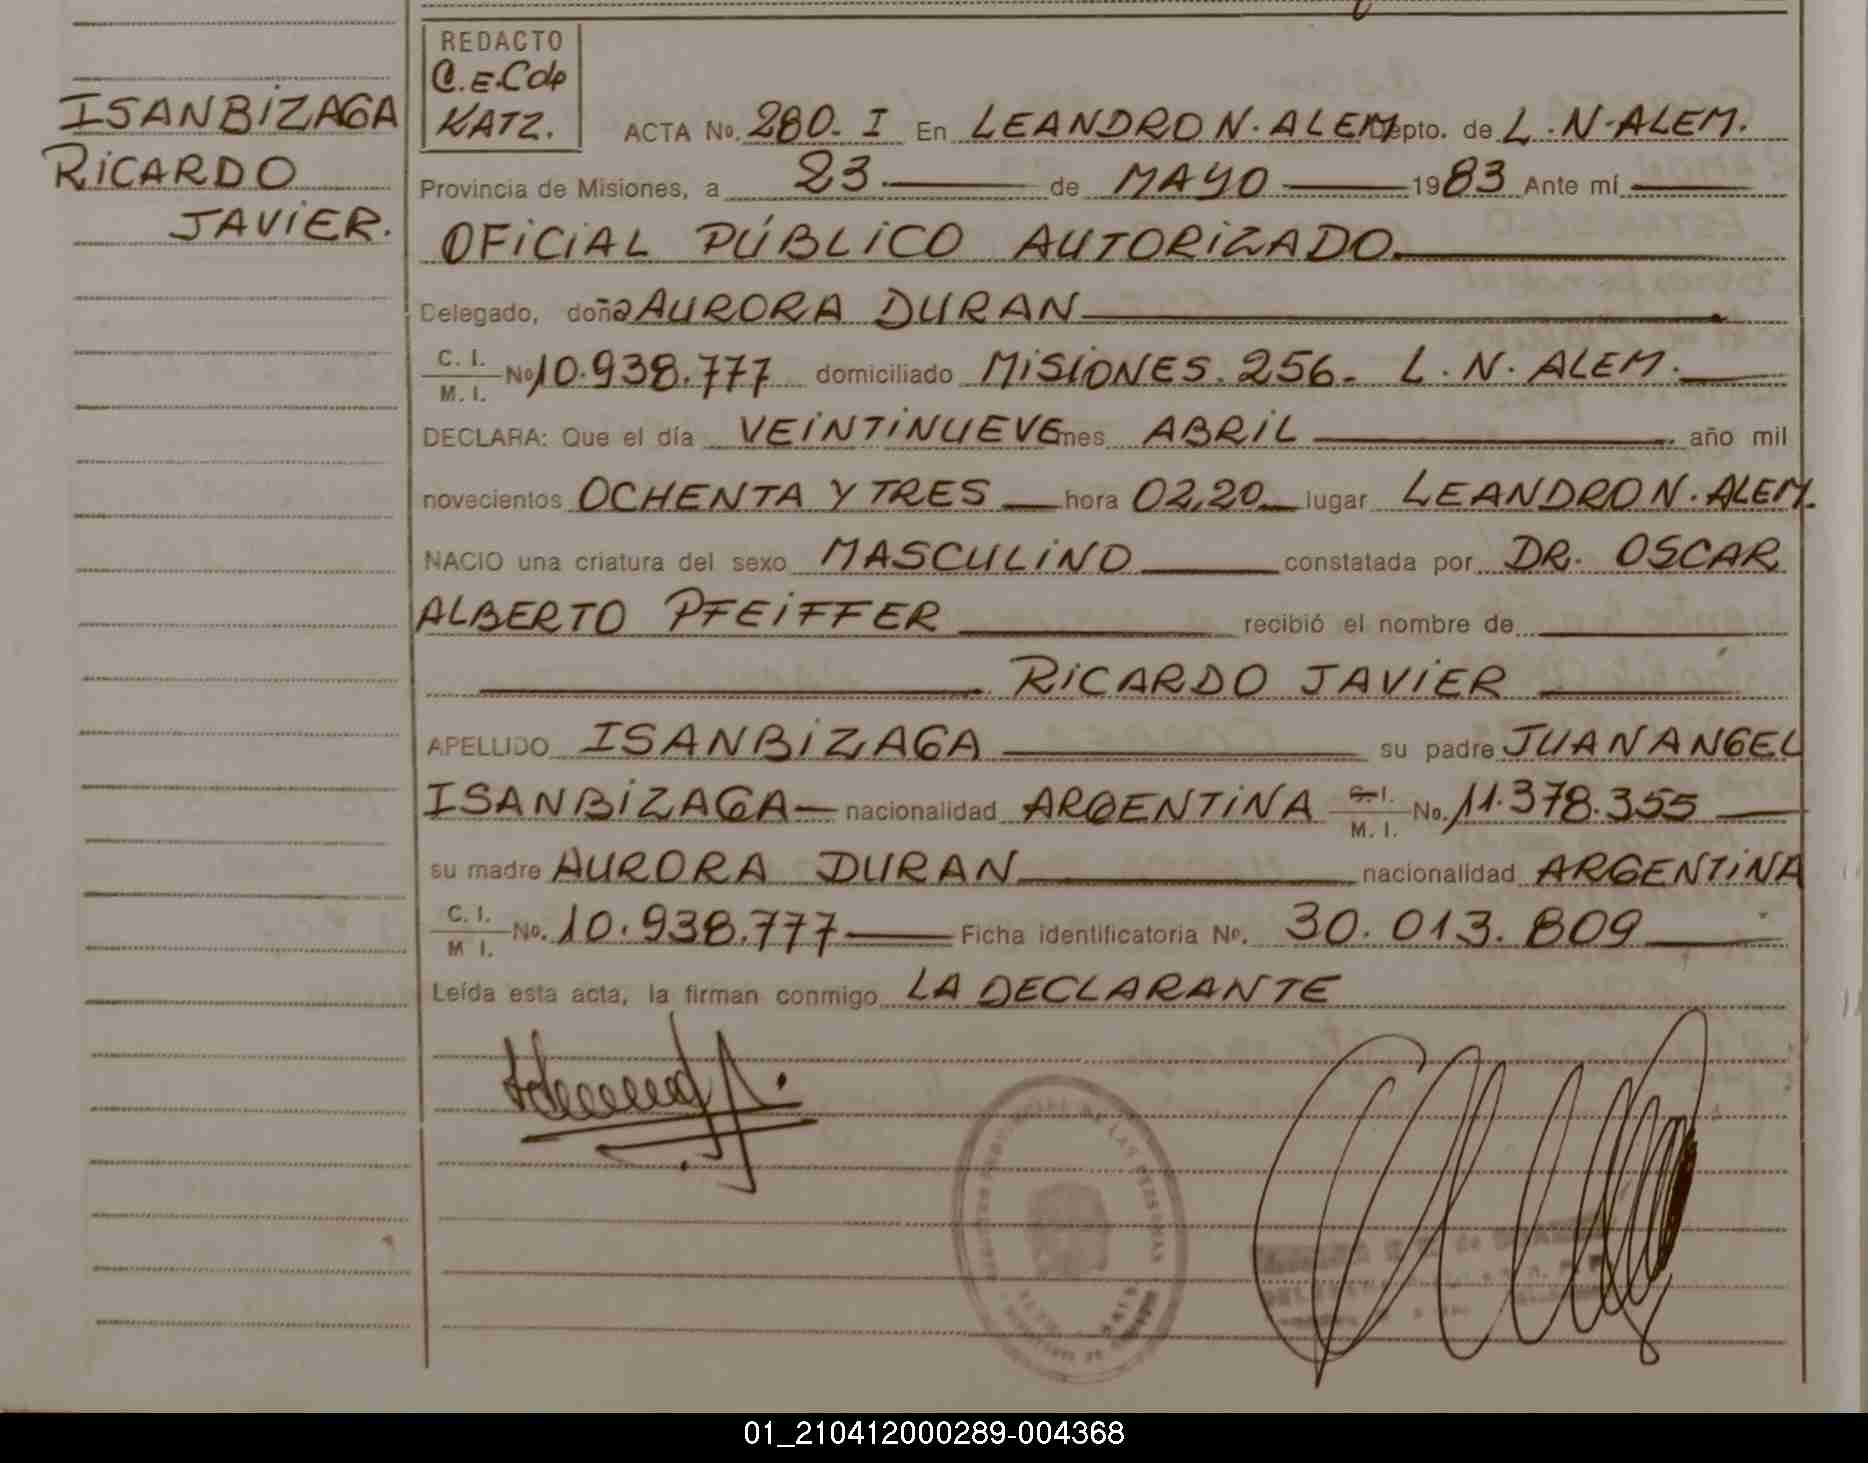 ISANBIZAGA
RICARDO
JAVIER.
REDACTO
C.E.Cdp
KATZ.
ACTA No. 280. I En LEANDRO N. ALEM Depto. de L.N.ALEM.
Provincia de Misiones, a 23 de MAYO 1983 Ante mí
OFICIAL PÚBLICO AUTORIZADO.
Delegado, doña AURORA DURAN
C. I.
M. I. No 10.938.777 domiciliado MISIONES. 256. L. N. ALEM.
DECLARA: Que el día VEINTINUEVE mes ABRIL año mil
novecientos OCHENTA Y TRES hora 02,20 lugar LEANDRO N. ALEM.
NACIO una criatura del sexo MASCULINO constatada por DR. OSCAR
ALBERTO PFEIFFER recibió el nombre de
RICARDO JAVIER
APELLIDO ISANBIZAGA su padre JUAN ANGEL
ISANBIZAGA nacionalidad ARGENTINA C. I.
M. I. No. 11.378.355
su madre AURORA DURAN nacionalidad ARGENTINA
C. I.
M I. No. 10.938.777 Ficha identificatoria No. 30.013.809
Leída esta acta, la firman conmigo LA DECLARANTE
DE LAS PERSONAS
01_210412000289-004368